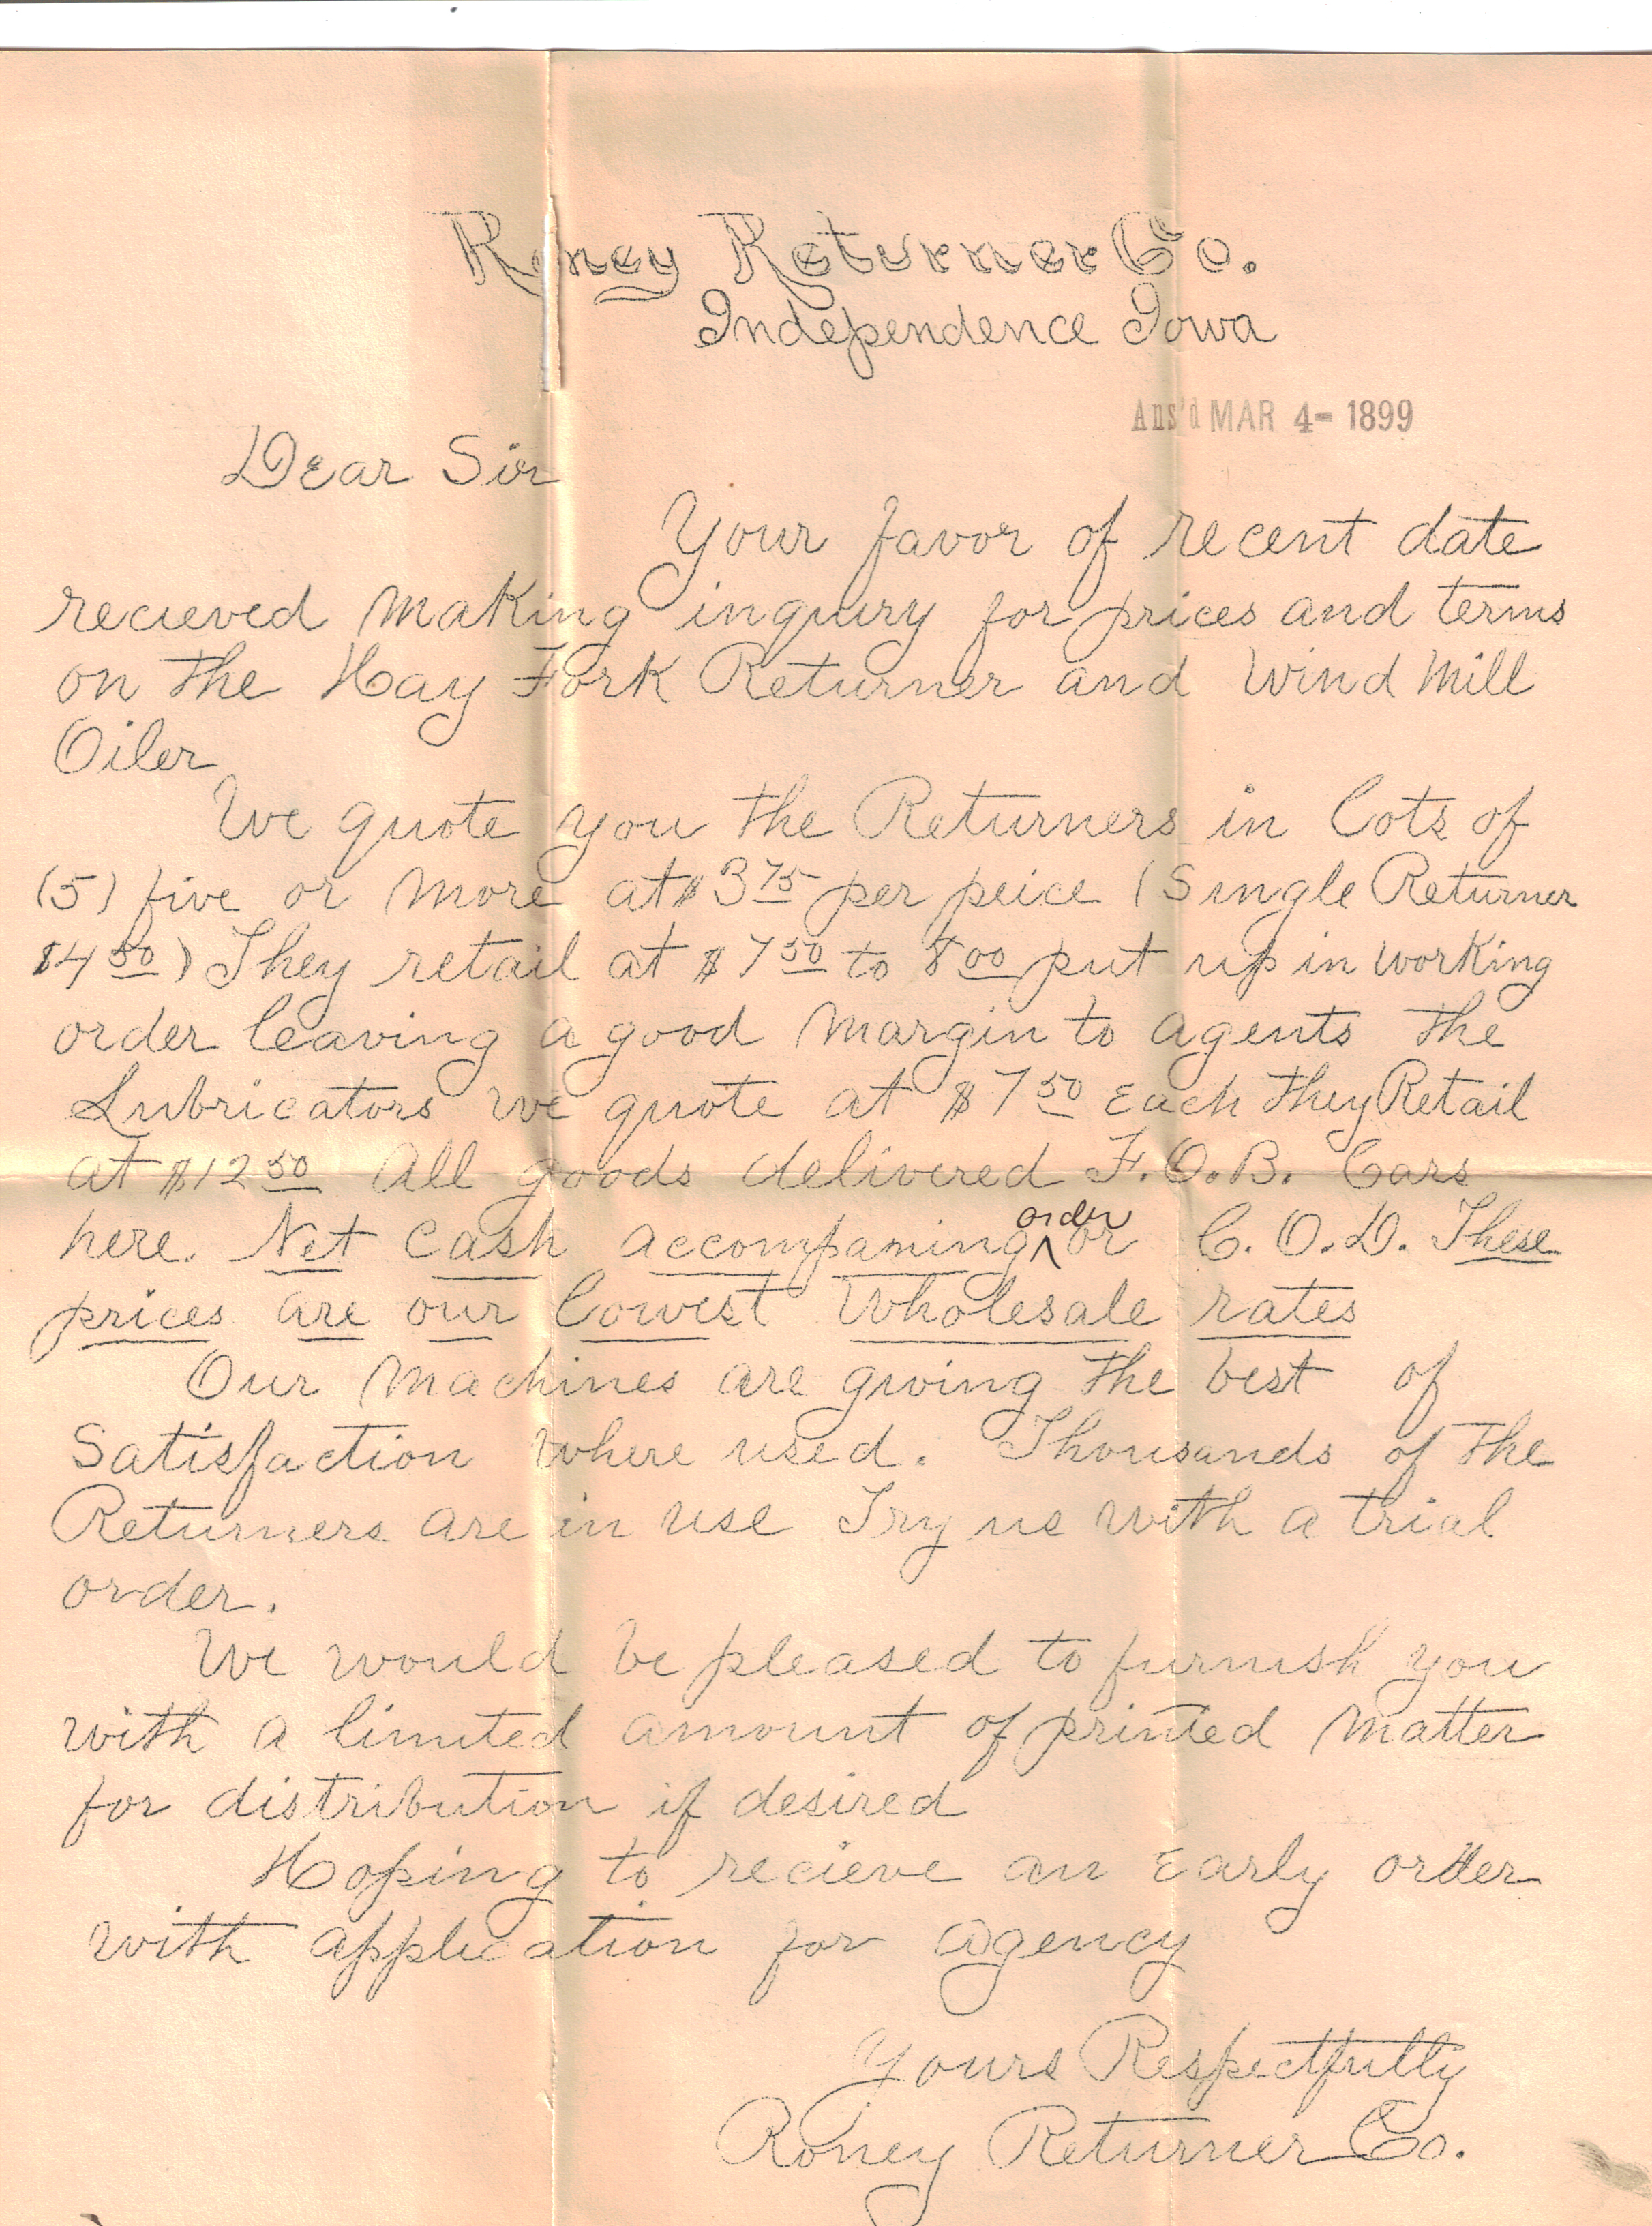 Roney Returner Co.
Independence Iowa
Ans'd MAR 4- 1899
Dear Sir
Your favor of recent date
recieved making inquiry for prices and terms
on the Hay Fork Returner and Wind Mill
Oiler
We quote you the Returners in Lots of
(5) five or more at $3 75 per peice (Single Returner
$4 50) They retail at $7 50 to 8 00 put up in working
order leaving a good margin to agents the
Lubricators we quote at $7 50 Each they Retail
at $12 50 All goods delivered F.O.B. Cars
here. Net Cash accompaning order or C.O.D. These
prices are our lowest Wholesale rates
Our Machines are giving the best of
Satisfaction where used. Thousands of the
Returners are in use Try us with a trial
order.
We would be pleased to furnish you
with a limited amount of printed matter
for distribution if desired
Hoping to recieve an Early order
with application for agency
Yours Respectfully
Roney Returner Co.